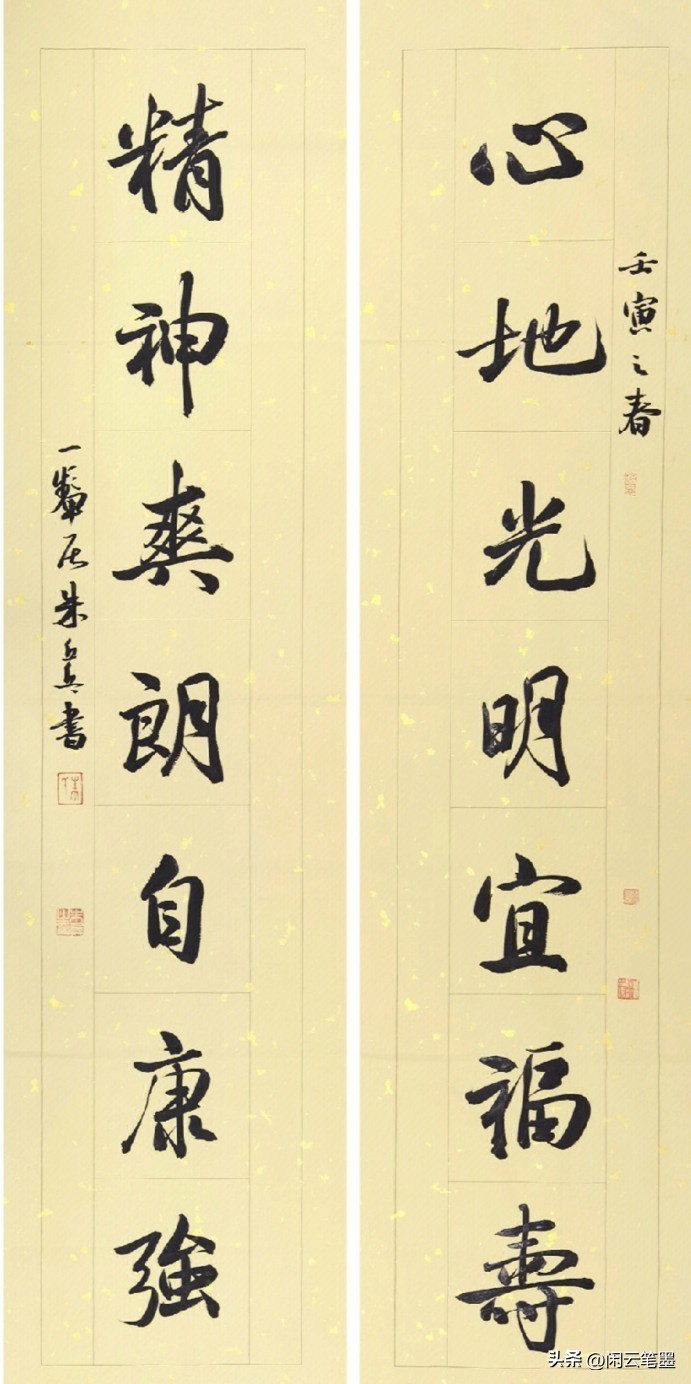 心地光明宜福壽
壬寅之春
精神爽朗自康強
一粲居朱真書
头条 @闲云笔墨